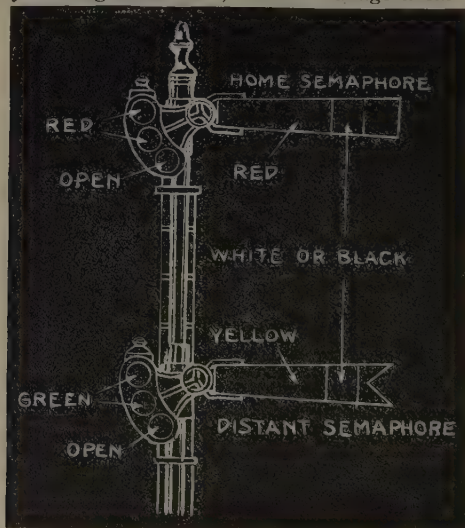 HOME SEMAPHORE
RED
OPEN
RED
WHITE OR BLACK
YELLOW
GREEN
DISTANT SEMAPHORE
OPEN